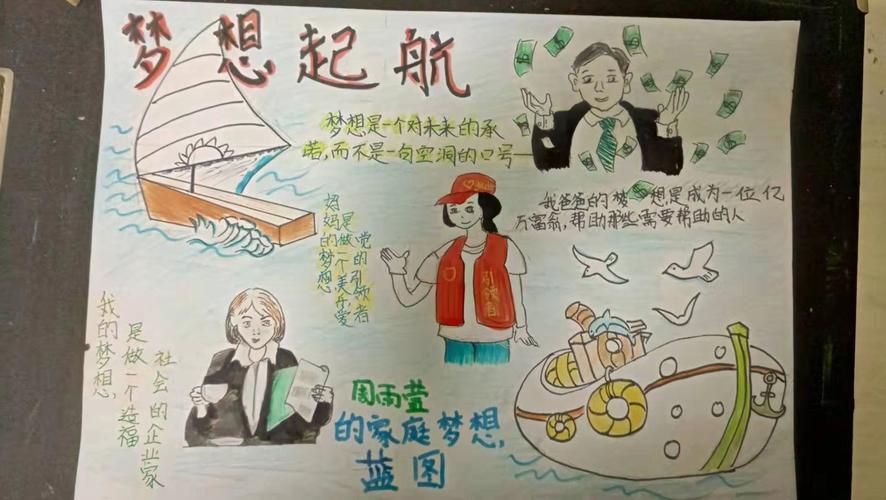 梦想起航
梦想是一个对未来的承
诺,而不是一句空洞的口号——
我爸爸的梦想是成为一位亿
万富翁,帮助那些需要帮助的人
妈妈的梦想
是做一个美爱
党的引领者
引领者
我的梦想,
是做一个造福
社会的企业家
周雨萱
的家庭梦想,
蓝图